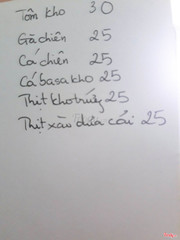 Tôm kho 30
Gà chiên 25
Cá chiên 25
Cá basa kho 25
Thịt kho trứng 25
Thịt xào dưa cải 25